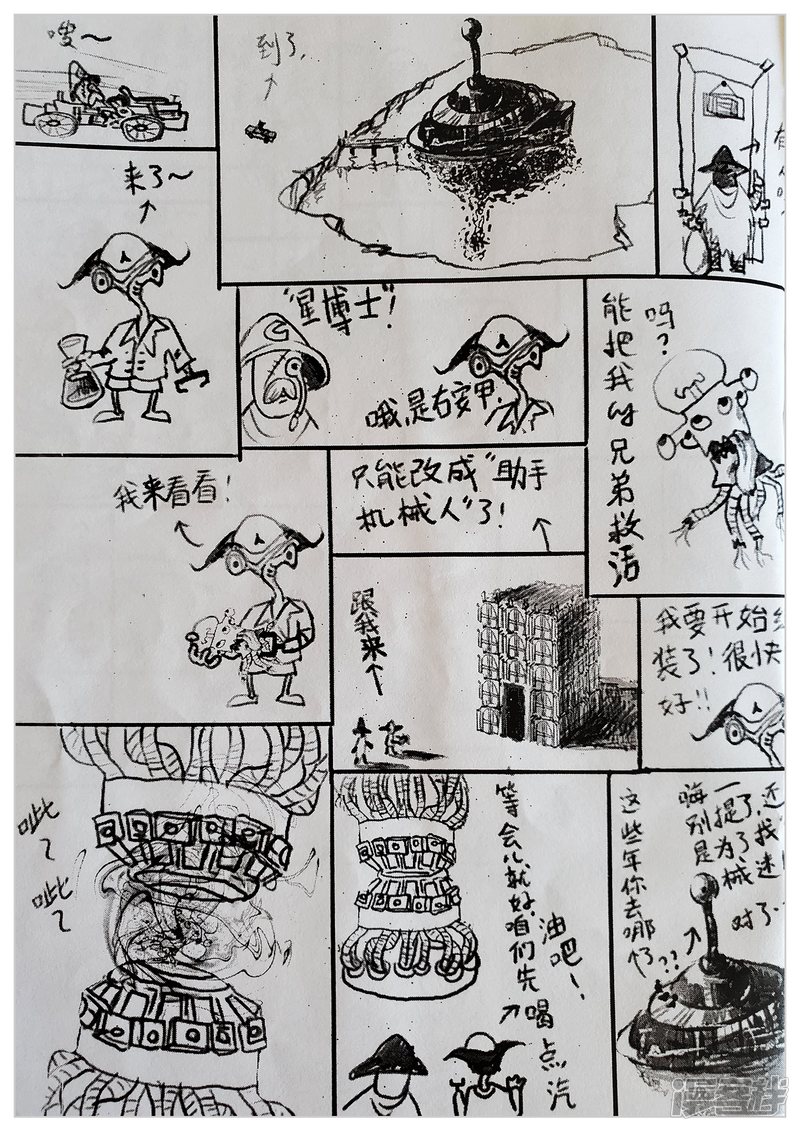 嗖～
到了,
有人吗
来了～
"星博士"!
哦,是右安甲,
能把我的兄弟救活
吗?
我来看看!
只能改成"助手
机械人"了!
跟我来
我要开始
装了!很快
好!!
呲～
呲～
等会儿就好,咱们先喝点汽
油吧!
这些年你去哪了??
嗨,别提了,
漫客栈